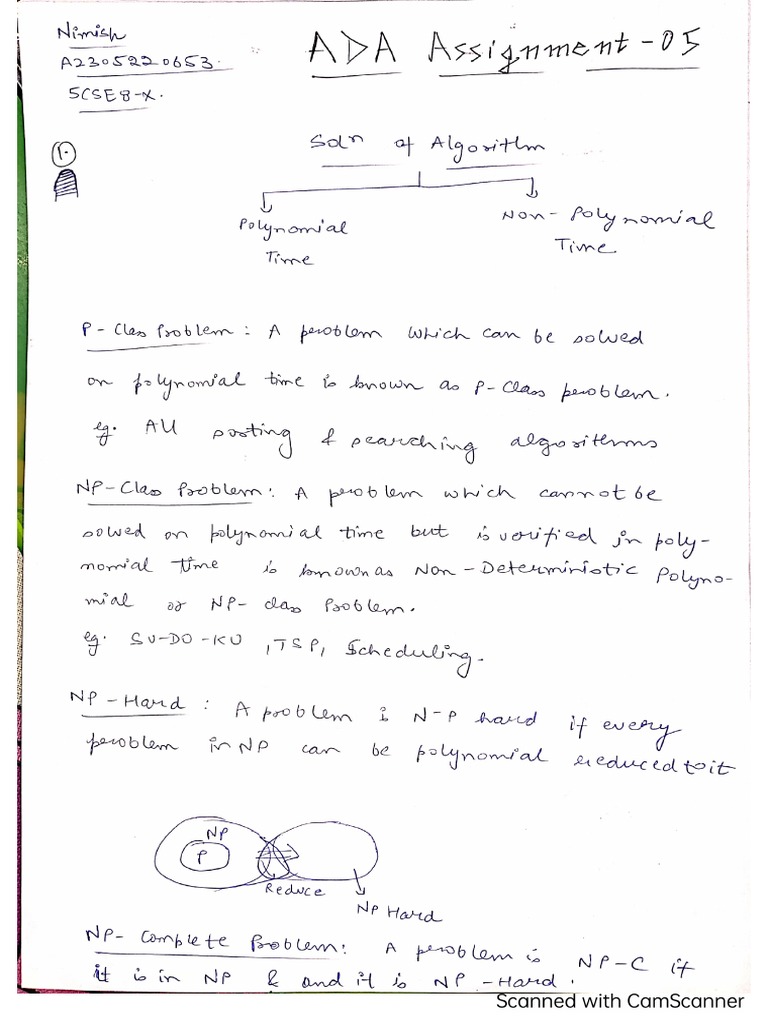 Nimish
A2305220653.
5CSE8-X.
ADA Assignment-05
1.
Soln of Algorithm
Polynomial
Time
Non-Polynomial
Time
P-Class Problem: A problem which can be solved
on polynomial time is known as P-Class problem.
eg. All sorting & searching algorithms
NP-Class Problem: A problem which cannot be
solved on polynomial time but is verified in poly-
nomial time is known as Non-Deterministic Polyno-
mial or NP-class Problem.
eg. SU-DO-KU, TSP, Scheduling.
NP-Hard: A problem is N-P hard if every
problem in NP can be polynomial reduced to it
NP
P
Reduce
NP Hard
NP-Complete Problem: A problem is NP-C if
it is in NP & and it is NP-Hard.
Scanned with CamScanner